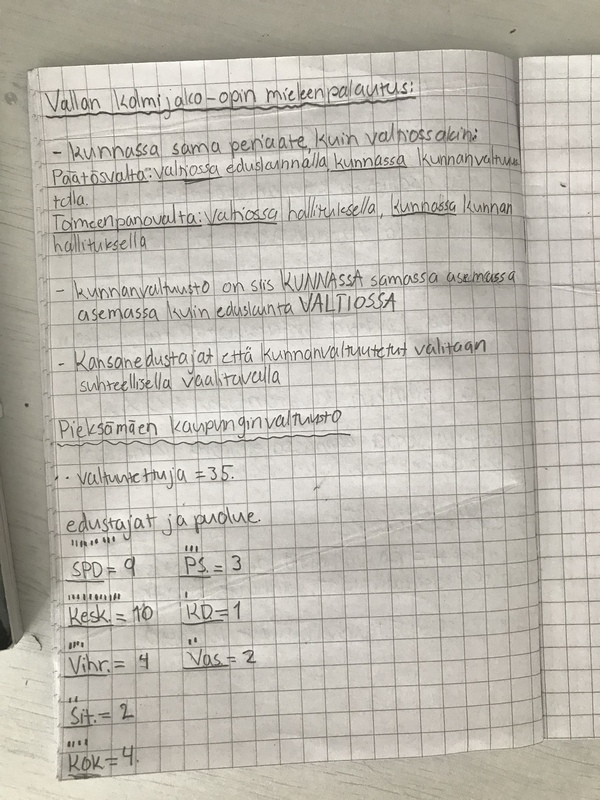 Vallan kolmijako-opin mieleenpalautus:
- kunnassa sama periaate, kuin valtiossakin:
Päätösvalta: valtiossa eduskunnalla, kunnassa kunnanvaltuus
tolla.
Toimeenpanovalta: Valtiossa hallituksella, kunnassa kunnan
hallituksella
- kunnanvaltuusto on siis KUNNASSA samassa asemassa
asemassa kuin eduskunta VALTIOSSA
- Kansanedustajat että kunnanvaltuutetut valitaan
suhteellisella vaalitavalla
Pieksämäen kaupunginvaltuusto
·· valtuutettuja = 35.
edustajat ja puolue.
SPD = 9 PS. = 3
Kesk. = 10 KD = 1
Vihr. = 4 Vas = 2
Sit. = 2
KOK = 4.